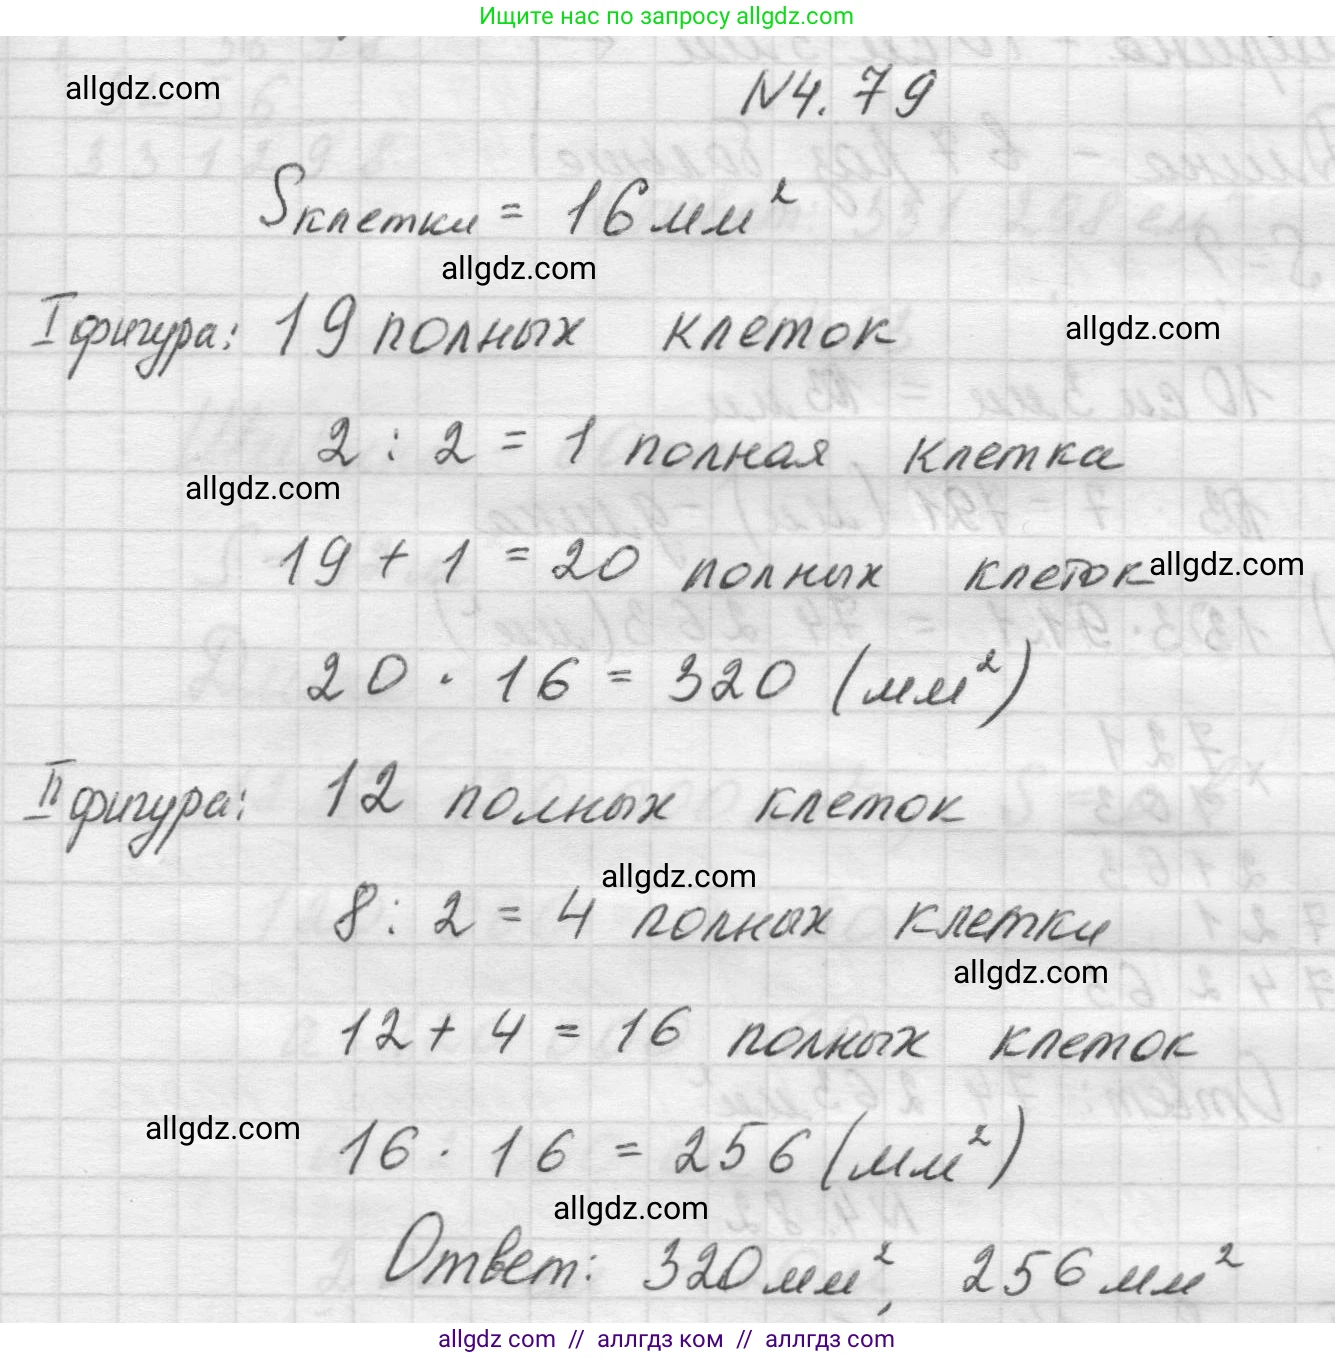 Ищите нас по запросу allgdz.com
allgdz.com
N4.79
Sклетки = 16 мм²
allgdz.com
I фигура: 19 полных клеток
allgdz.com
2 : 2 = 1 полная клетка
allgdz.com
19 + 1 = 20 полных клеток
allgdz.com
20 · 16 = 320 (мм²)
II фигура: 12 полных клеток
allgdz.com
8 : 2 = 4 полных клетки
allgdz.com
12 + 4 = 16 полных клеток
allgdz.com
16 · 16 = 256 (мм²)
allgdz.com
Ответ: 320 мм², 256 мм²
allgdz.com // аллгдз ком // аллгдз.com